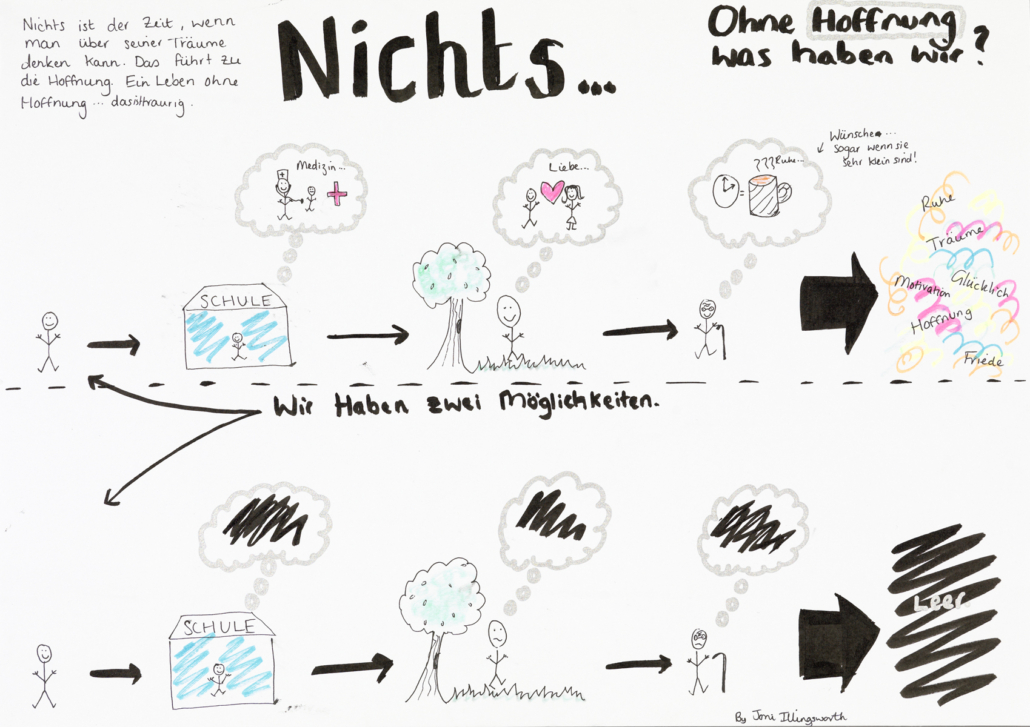 Nichts ist der Zeit, wenn
man über seiner Träume
denken kann. Das führt zu
die Hoffnung. Ein Leben ohne
Hoffnung ... dasisttraurig.
Nichts...
Ohne Hoffnung
was haben wir?
Medizin...
Liebe...
???Ruhe...
Wünsche...
sogar wenn sie
sehr klein sind!
SCHULE
Ruhe
Träume
Motivation
Glücklich
Hoffnung
Friede
Wir Haben zwei Möglichkeiten.
SCHULE
Leer.
By Joni Illingsworth